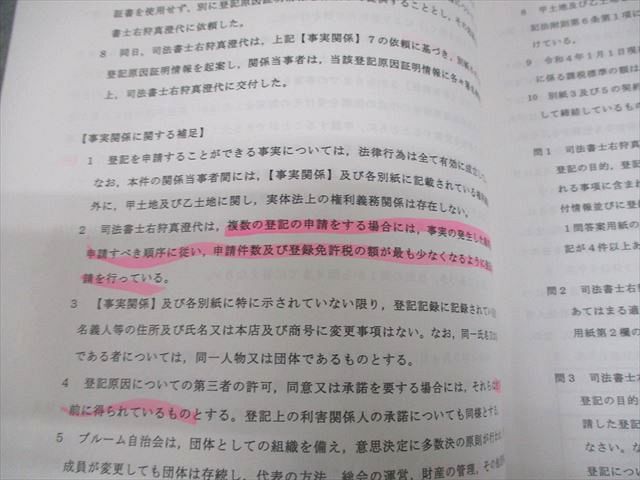 証書を使用せず、別に登記原因証明情報を
書士右狩真澄代に依頼した。
8 同日、司法書士右狩真澄代は、上記【事実関係】7の依頼に基づき、別紙
登記原因証明情報を起案し、関係当事者は、当該登記原因証明情報に各々
上、司法書士右狩真澄代に交付した。
【事実関係に関する補足】
1 登記を申請することができる事実については、法律行為は全て有効に成立
なお、本件の関係当事者間には、【事実関係】及び各別紙に記載されている権利
外に、甲土地及び乙土地に関し、実体法上の権利義務関係は存在しない。
2 司法書士右狩真澄代は、複数の登記の申請をする場合には、事実の発生した
申請すべき順序に従い、申請件数及び登録免許税の額が最も少なくなるように
請を行っている。
3 【事実関係】及び各別紙に特に示されていない限り、登記記録に記録されて
名義人等の住所及び氏名又は本店及び商号に変更事項はない。なお、同一氏名
である者については、同一人物又は団体であるものとする。
4 登記原因についての第三者の許可、同意又は承諾を要する場合には、それら
前に得られているものとする。登記上の利害関係人の承諾についても同様とする
5 ブルーム自治会は、団体としての組織を備え、意思決定に多数決の原則が行わ
成員が変更しても団体は存続し、代表の方法、総会の運営、財産の管理、その他
8 甲土地及び乙土
記法附則第6条第1項
けている。
9 令和4年1月1日現
に係る課税標準の額は
10 別紙3及び5の契約
して締結しているもの
問1 司法書士右狩真
登記の目的、登
れる事項に含ま
付情報並びに登
1問答案用紙の
記が4件以上あ
問2 司法書士右
あてはまる適
用紙第2欄の
問3 司法書士
登記の目的
請した登記
なさい。な